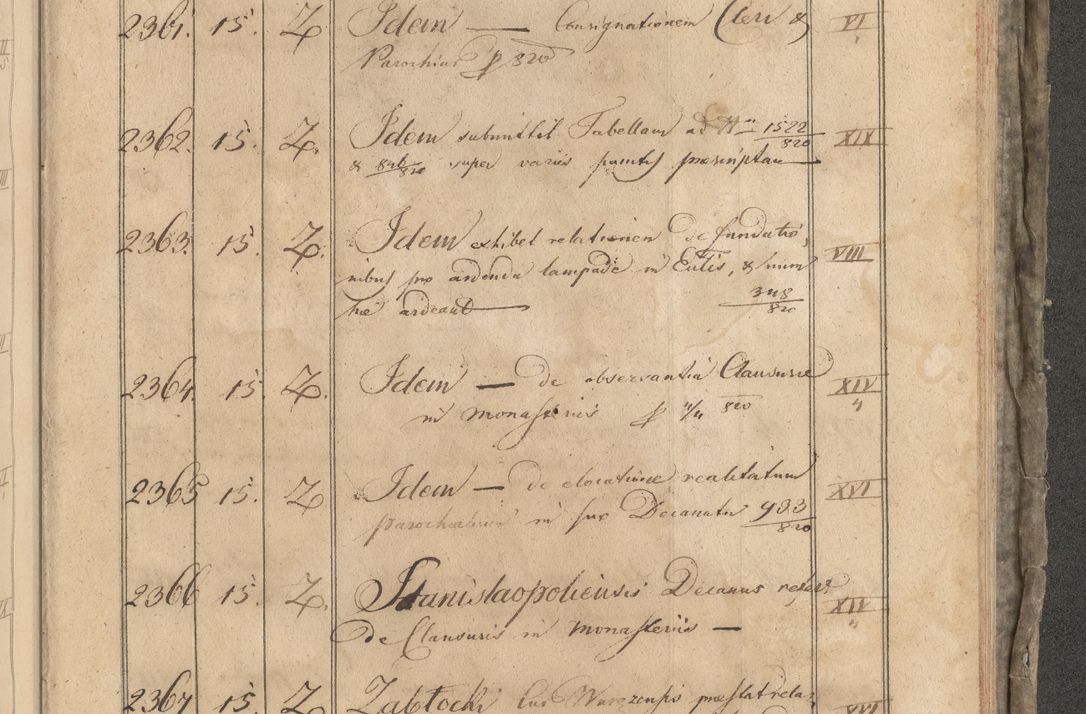 2361. 15. Z. Idem — Consignationem Cleri & VI
Parochius p 820
2362. 15. Z. Idem submittit Tabellam ad N 1522/820 XIX
& 846/820 super variis punctis praescriptam
2363. 15. Z. Idem exhibet relationem de fundatio, VIII
nibus pro ardenda lampade in Ectis, & num
hae ardeant — 348/820
2364. 15. Z. Idem — de observantia Clausurae XIV
in Monasteriis p 820
2365 15. Z. Idem — de elocatione realitatum XVI
parochialium in suo Decanatu 933/820
2366 15. Z. Stanislaopoliensis Decanus refert XIV
de Clausuris in Monasteriis —
2367 15. Z. Zabłocki Warezensis praestat rela, XVI